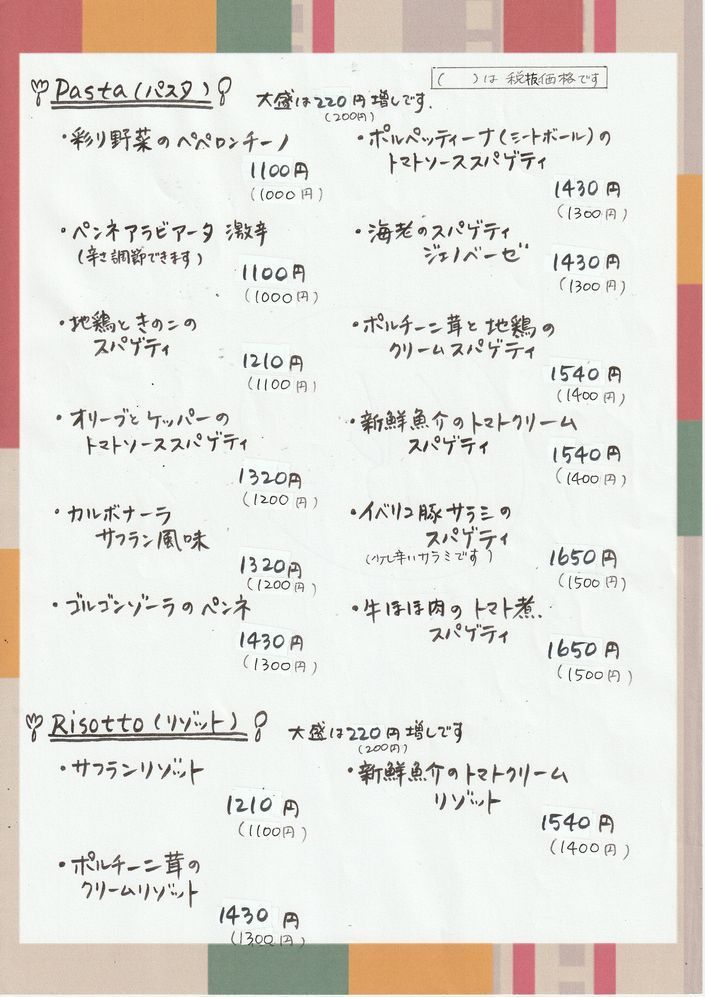 ( )は 税抜価格です
Pasta(パスタ) 大盛は220円増しです.
(200円)
・彩り野菜のペペロンチーノ
1100円
(1000円)
・ペンネアラビアータ 激辛
(辛さ調節できます)
1100円
(1000円)
・地鶏ときのこの
スパゲティ
1210円
(1100円)
・オリーブとケッパーの
トマトソーススパゲティ
1320円
(1200円)
・カルボナーラ
サフラン風味
1320円
(1200円)
・ゴルゴンゾーラのペンネ
1430円
(1300円)
・ポルペッティーナ(ミートボール)の
トマトソーススパゲティ
1430円
(1300円)
・海老のスパゲティ
ジェノベーゼ
1430円
(1300円)
・ポルチーニ茸と地鶏の
クリームスパゲティ
1540円
(1400円)
・新鮮魚介のトマトクリーム
スパゲティ
1540円
(1400円)
・イベリコ豚サラミの
スパゲティ
(少し辛いサラミです)
1650円
(1500円)
・牛ほほ肉のトマト煮.
スパゲティ
1650円
(1500円)
Risotto(リゾット) 大盛は220円増しです
(200円)
・サフランリゾット
1210円
(1100円)
・ポルチーニ茸の
クリームリゾット
1430円
(1300円)
・新鮮魚介のトマトクリーム
リゾット
1540円
(1400円)